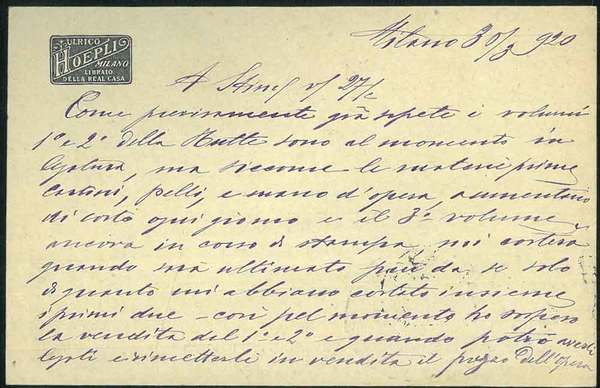 ULRICO
HOEPLI
MILANO
LIBRAIO
DELLA REAL CASA
Milano 30/3 920
A Stim/ v/ 27/
Come precisamente già sapete i volumi
1º e 2º della sono al momento in
legatura, ma siccome le materie prime
cartoni, pelli, e mano d'opera, aumentano
di costo ogni giorno e il 3º volume
ancora in corso di stampa, mi costerà
quando sarà ultimato più da se solo
di quanto mi abbiano costato insieme
i primi due - così pel momento ho sospeso
la vendita del 1º e 2º e quando potrò averli
legati e rimetterli in vendita il prezzo dell'opera